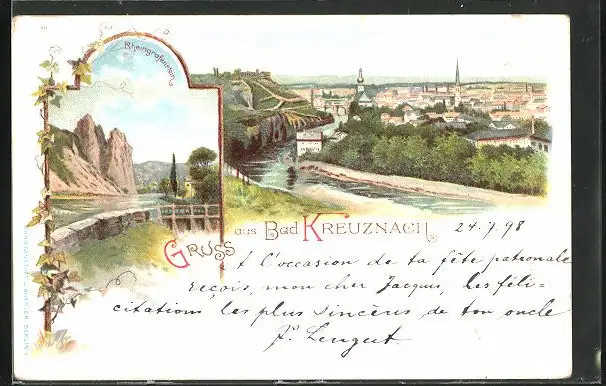 Rheingrafenstein
Gruss aus Bad Kreuznach
24.7.98
A l'occasion de ta fête patronale
reçois, mon cher Jacques, les féli-
citations les plus sincères de ton oncle